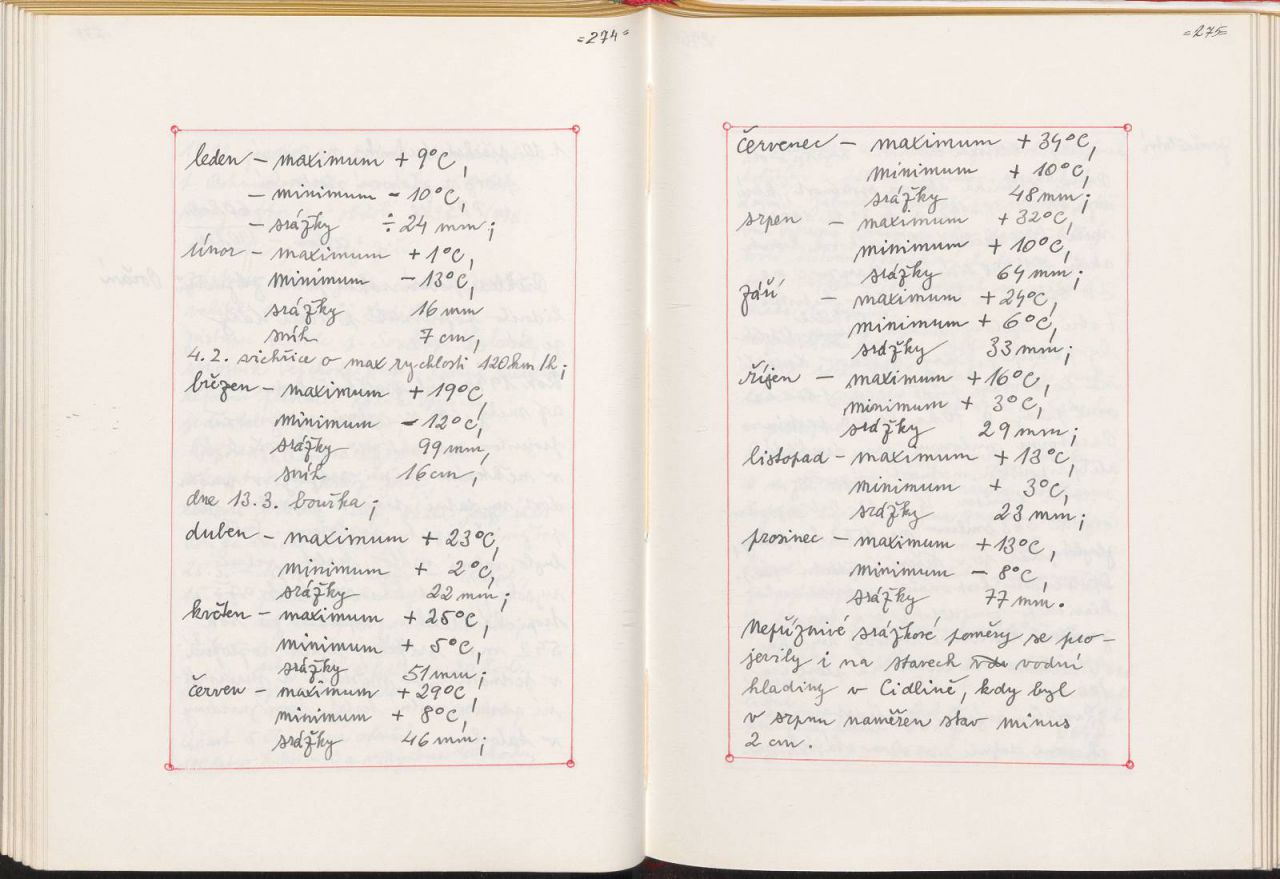 =274=
leden – maximum + 9°C,
– minimum – 10°C,
– srážky ÷ 24 mm;
únor – maximum + 1°C,
minimum – 13°C,
srážky 16 mm
sníh 7 cm,
4.2. vichřice o max rychlosti 120 km/h;
březen – maximum + 19°C,
minimum – 12°C,
srážky 99 mm,
sníh 16 cm,
dne 13.3. bouřka;
duben – maximum + 23°C,
minimum + 2°C,
srážky 22 mm;
květen – maximum + 25°C,
minimum + 5°C,
srážky 51 mm;
červen – maximum + 29°C,
minimum + 8°C,
srážky 46 mm;
=275=
červenec – maximum + 34°C,
minimum + 10°C,
srážky 48 mm;
srpen – maximum + 32°C,
minimum + 10°C,
srážky 64 mm;
září – maximum + 24°C,
minimum + 6°C,
srážky 33 mm;
říjen – maximum + 16°C,
minimum + 3°C,
srážky 29 mm;
listopad – maximum + 13°C,
minimum + 3°C,
srážky 23 mm;
prosinec – maximum + 13°C,
minimum – 8°C,
srážky 77 mm.
Nepříznivé srážkové poměry se pro-
jevily i na stavech vodní
hladiny v Cidlině, kdy byl
v srpnu naměřen stav minus
2 cm.